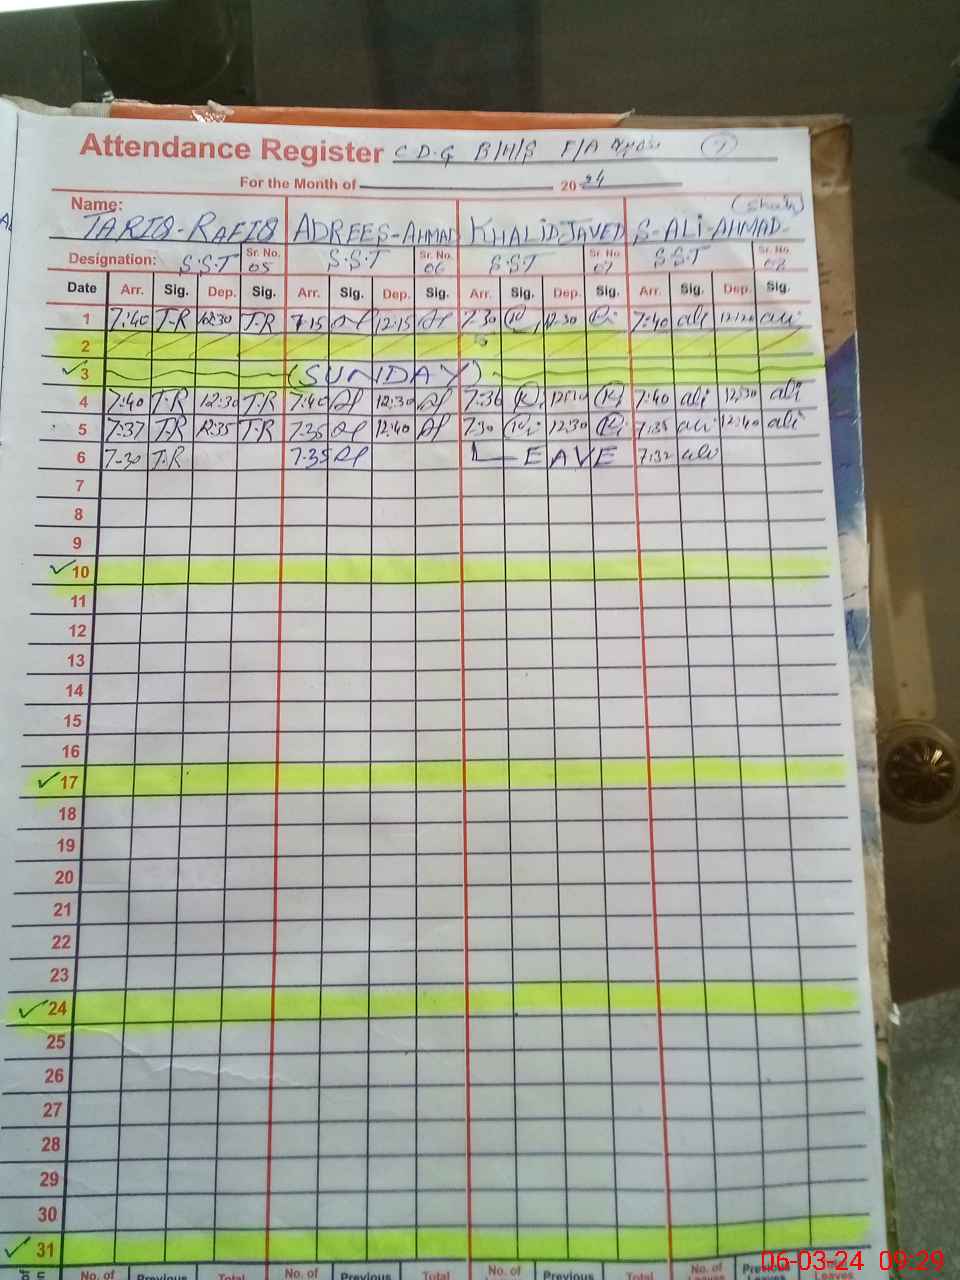 Attendance Register C.D.G B/H/S F/A
For the Month of 2024
Name:
TARIQ-RAFIQ ADREES-AHMAD KHALID JAVED S-ALI-AHMAD
Designation: S.S.T Sr. No. 05 S.S.T Sr. No. 06 S.S.T Sr. No. 07 S.S.T Sr. No. 08
Date Arr. Sig. Dep. Sig. Arr. Sig. Dep. Sig. Arr. Sig. Dep. Sig. Arr. Sig. Dep. Sig.
1 7:40 T-R 12:30 T.R 7:15 12:15 7:30 12:30 7:40 ali ali
2
3 (SUNDAY)
4 7:40 T.R 12:30 T.R 7:40 12:30 7:40 ali 12:30 ali
5 7:37 T.R 12:35 T.R 7:35 12:40 7:30 12:30 7:35 ali 12:40 ali
6 7-30 T.R 7:35 LEAVE 7:32 ali
7
8
9
10
11
12
13
14
15
16
17
18
19
20
21
22
23
24
25
26
27
28
29
30
31
No. of Previous Total No. of Previous Total No. of Previous Total No. of
06-03-24 09:29